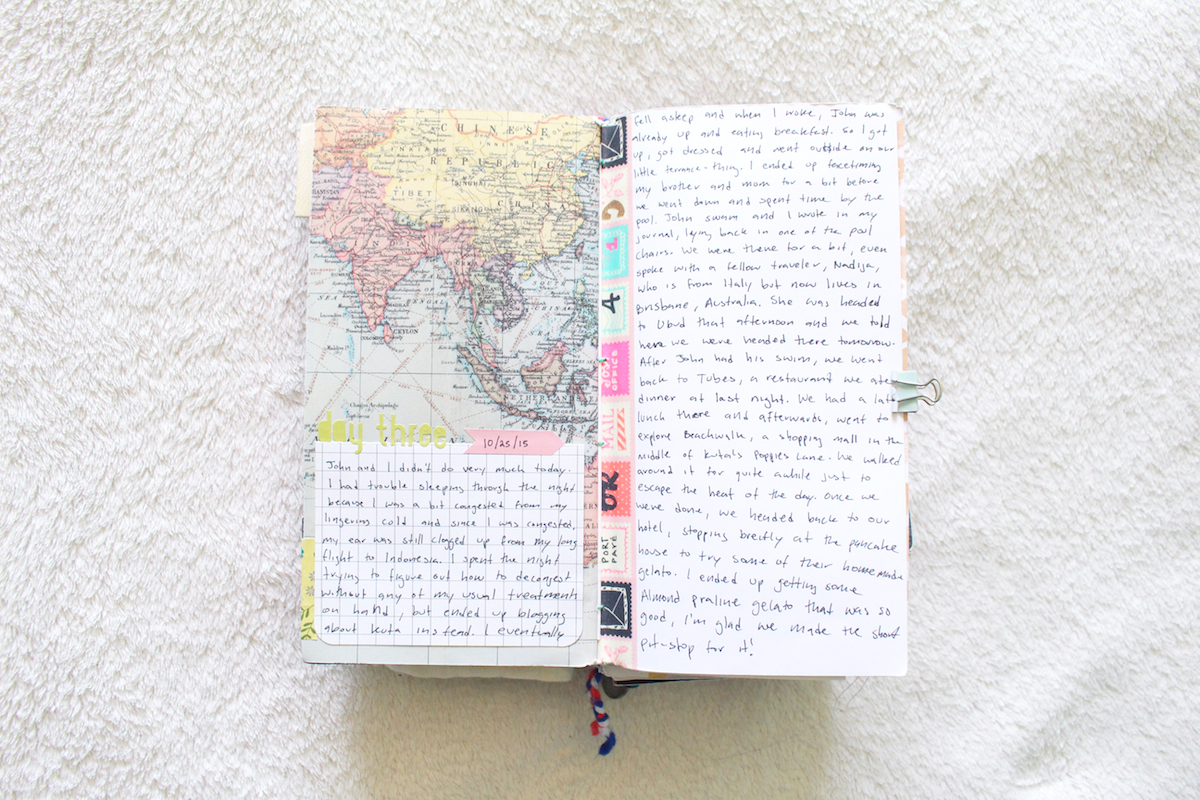 CHINESE
REPUBLIC
CHINA
TIBET
INDIA
CEYLON
day three
10/25/15
John and I didn't do very much today.
I had trouble sleeping through the night
because I was a bit congested from my
lingering cold and since I was congested,
my ear was still clogged up from my long
flight to Indonesia. I spent the night
trying to figure out how to decongest
without any of my usual treatments
on hand, but ended up blogging
about Kuta instead. I eventually
4
POST
OFFICE
MAIL
PORT
PAYÉ
fell asleep and when I woke, John was
already up and eating breakfast. So I got
up, got dressed and went outside on our
little terrance-thing. I ended up facetiming
my brother and mom for a bit before
we went down and spent time by the
pool. John swam and I wrote in my
journal, laying back in one of the pool
chairs. We were there for a bit, even
spoke with a fellow traveler, Nadija,
who is from Italy but now lives in
Brisbane, Australia. She was headed
to Ubud that afternoon and we told
here we were headed there tomorrow.
After John had his swim, we went
back to Tubes, a restaurant we ate
dinner at last night. We had a late
lunch there and afterwards, went to
explore Beachwalk, a shopping mall in the
middle of Kuta's Poppies Lane. We walked
around it for quite awhile just to
escape the heat of the day. Once we
were done, we headed back to our
hotel, stopping breifly at the pancake
house to try some of their homemade
gelato. I ended up getting some
Almond praline gelato that was so
good, I'm glad we made the short
pit-stop for it!